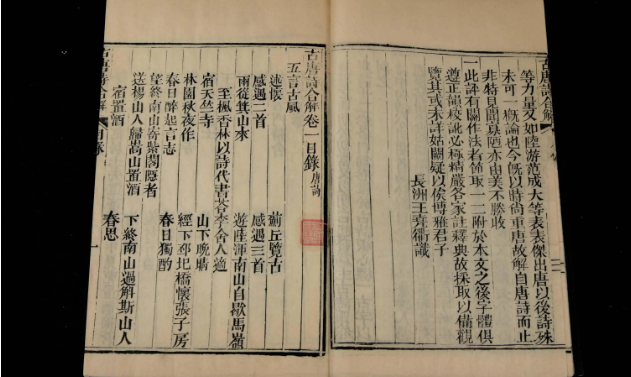 古唐詩合解
等力量又如陸游范成大等表表傑出唐以後詩殊
未可一概論也今既以時尚重唐故解自唐詩而止
非特見聞寡陋亦由美不勝收
一此詳有關作法者節取一二附於本文之後字體俱
遵正韻校訛必極精嚴各家註釋典故採取以備觀
覽其或未詳姑闕疑以俟博雅君子
長洲王堯衢識
古唐詩合解卷一目錄 唐詩
五言古風
述懷 薊丘覽古
感遇二首 感遇三首
雨從箕山來 遊陸渾南山自歇馬嶺
至楓香林以詩代書荅李舍人適
宿天竺寺 山下晚晴
林園秋夜作 經下邳圯橋懷張子房
春日醉起言志 春日獨酌
望終南山寄紫閣隱者
送楊山人歸嵩山 下終南山過斛斯山人
宿置酒 春思
古唐詩合解 目錄 一